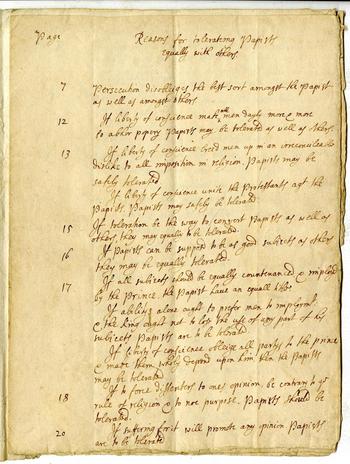 Page Reasons for tolerateing Papists
equally with others.
7 Persecution disobleiges the best sort amongst the Papist
as well as amongst others
12 If liberty of conscience make all men dayly more & more
to abhor popery Papists may be tolerated as well as others.
13 If liberty of conscience breed men up in an irreconcileable
dislike to all imposition in religion. Papists may be
safely tolerated
If liberty of conscience unite the Protestants agt the
Papists, Papists may safely be tolerated
15 If toleration be the way to convert Papists as well as
others, they may equally be tolerated.
16 If Papists can be supposd to be as good subjects as others
they may be equally tolerated.
17 If all subjects should be equally countenanced & imployd
by the Prince the Papist have an equall title
If abilitys alone ought to prefer men to imployment
& the King ought not to lose the use of any part of his
subjects Papists are to be tolerated
If liberty of conscience obleige all partys to the prince
& make them wholy depend upon him then the Papists
may be tolerated
18 If to force dissenters to ones opinion be contrary to ye
rule of religion & to noe purpose. Papists should be
tolerated.
20 If suffering for it will promote any opinion Papists
are to be tolerated